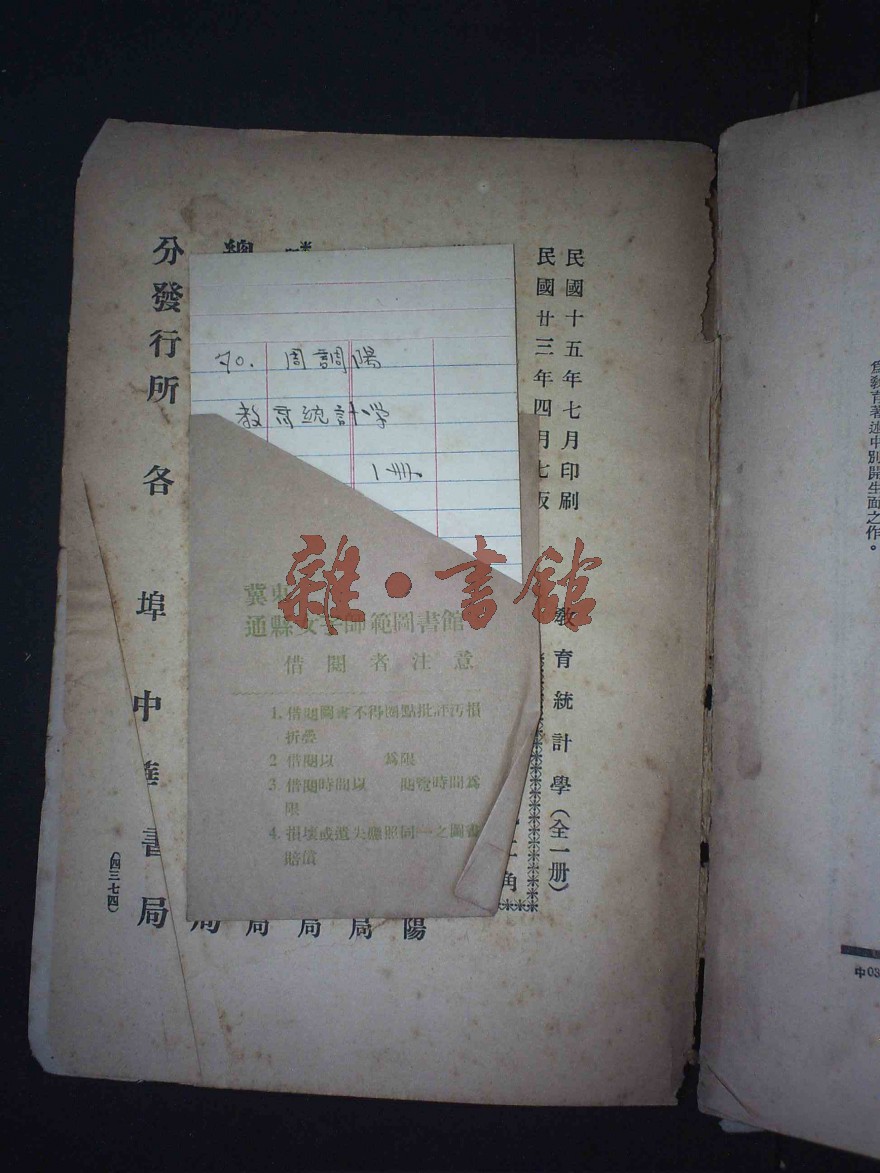 民國十五年七月印刷
民國廿三年四月七版
教育統計學(全一册)
角
70. 周調陽
教育統計学
1冊
雜·書館
冀東
通縣女子師範圖書館
借閱者注意
1. 借閱圖書不得圈點批評污損
折疊
2 借期以 為限
3. 借閱時間以 閱覽時間為
限
4. 損壞或遺失應照同一之圖書
賠償
陽
局
局
局
局
總
分發行所 各埠中華書局
(四三七四)
為教育著述中別開生面之作。
中03